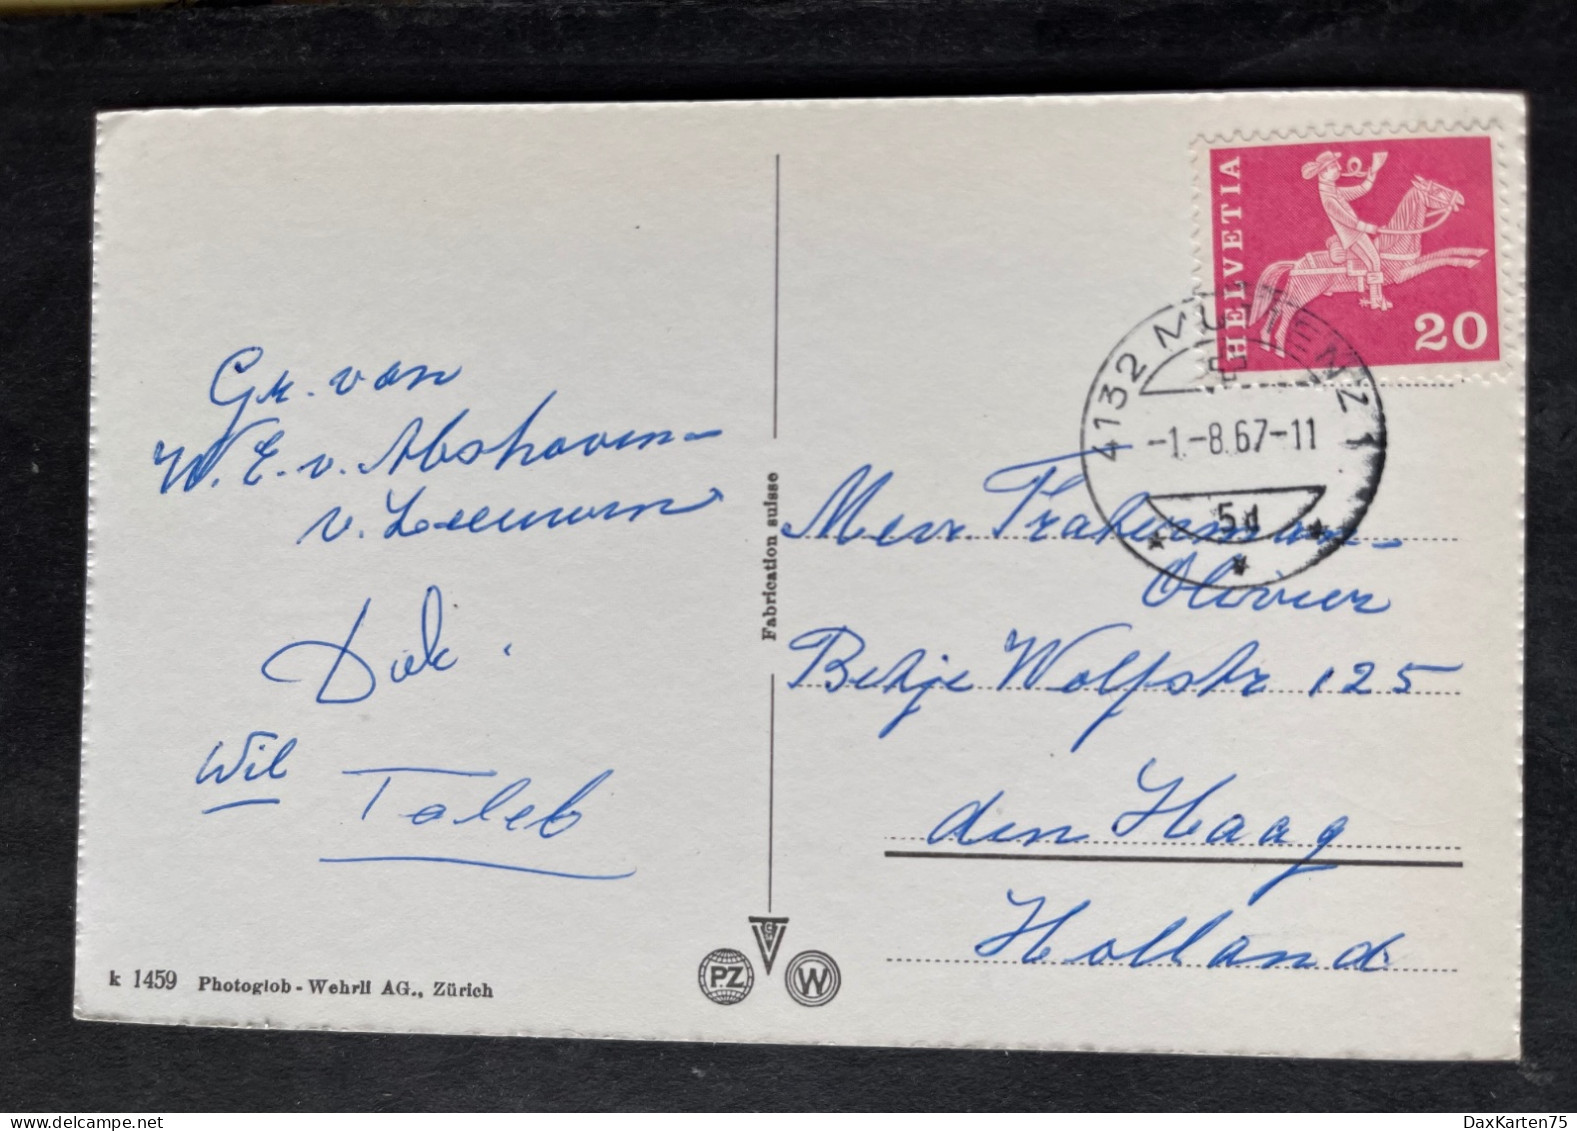 Gr. van
W. E. v. Abshoven-
v. Leeuwen
Dick.
Wil
Taleb
k 1459 Photoglob-Wehrli AG., Zürich
Fabrication suisse
PZ
W
HELVETIA
20
4132 MUTTENZ 1
-1.-8.67-11
5d
Mevr. Trakerman-
Olivier
Betje Wolfstr 125
den Haag
Holland
DaxKarten75